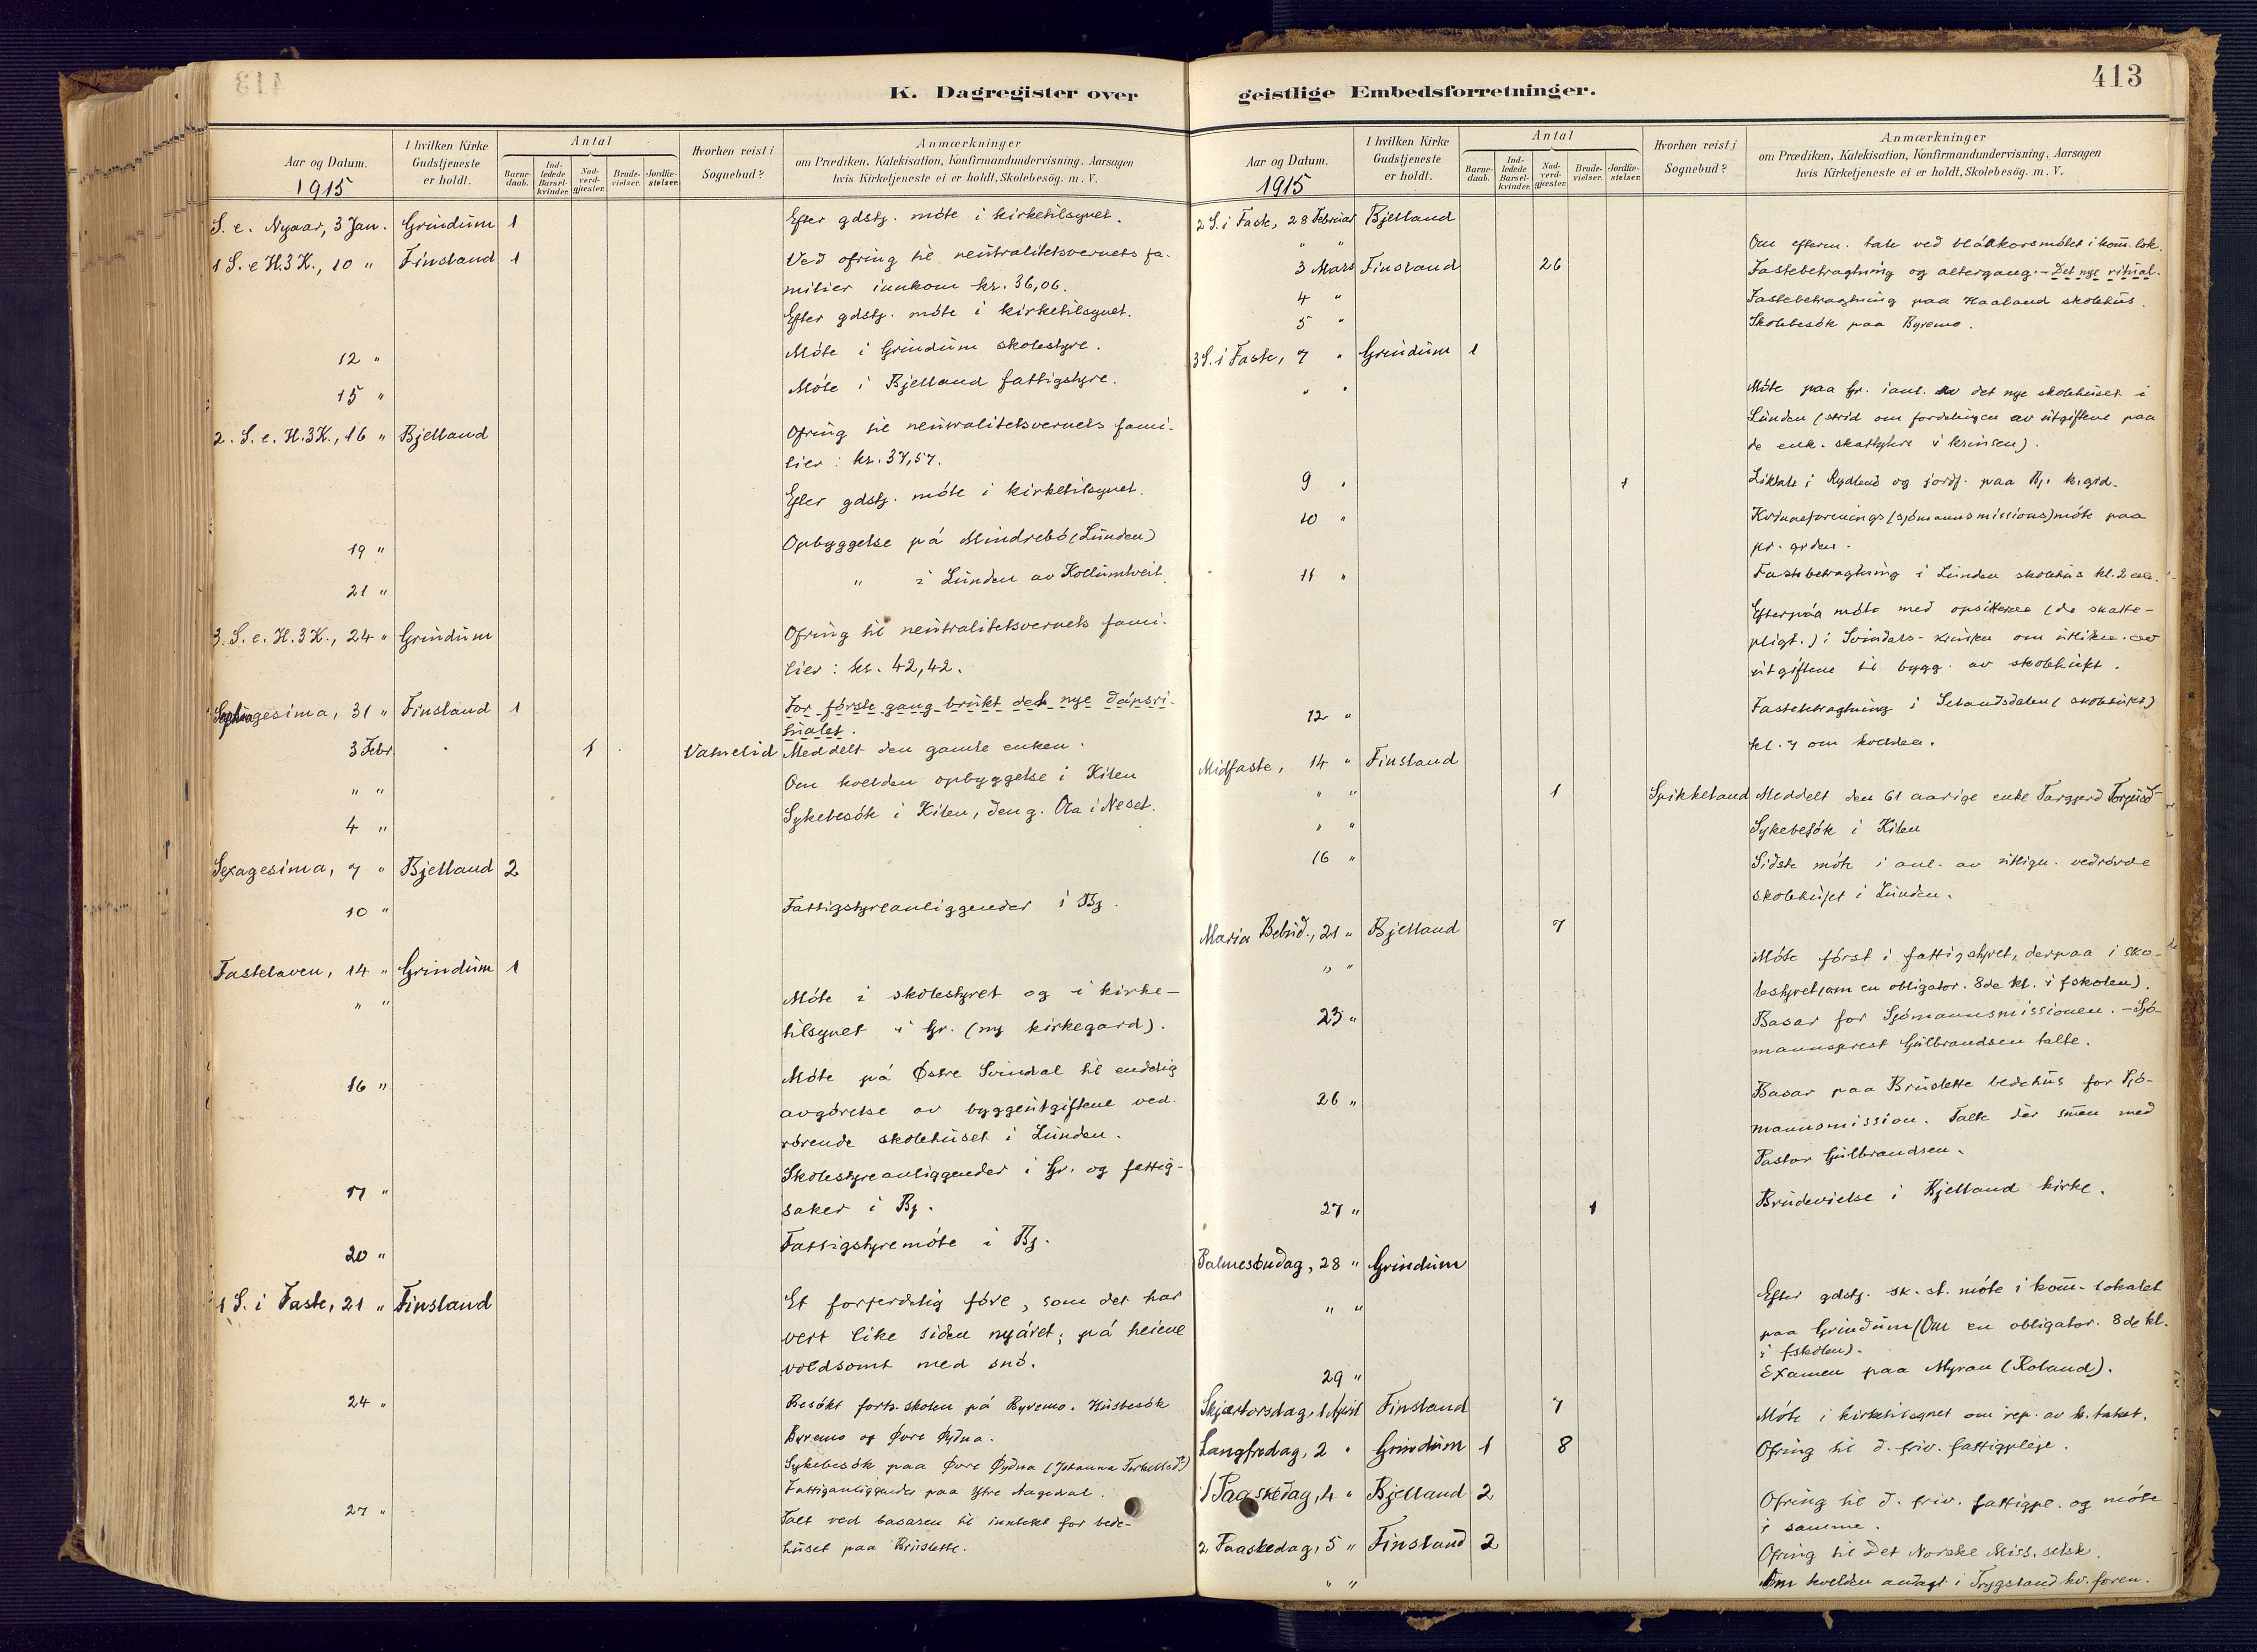 K. Dagregister over
Aar og Datum.
1915
I hvilken Kirke
Gudstjeneste
er holdt.
Antal
Barne-
daab.
Ind-
ledede
Barsel-
kvinder.
Nad-
verd-
gjester.
Brude-
vielser.
Jordfæ-
stelser.
Hvorhen reist i
Sognebud?
Anmærkninger
om Prædiken, Katekisation, Konfirmandundervisning, Aarsagen
hvis Kirketjeneste ei er holdt, Skolebesög. m. V.
S. e. Nyaar, 3 Jan. Grindum 1 Efter gdstj. møte i kirketilsynet.
1 S. e H.3K., 10 " Finsland 1 Ved ofring til neutralitetsvernets fa-
milier innkom kr. 36,06.
Efter gdstj. møte i kirketilsynet.
12 " Møte i Grindum skolestyre.
15 " Møte i Bjelland fattigstyre.
2. S. e. H.3K., 16 " Bjelland Ofring til neutralitetsvernets fami-
lier: kr. 37,57.
Efter gdstj. møte i kirketilsynet.
19 " Opbyggelse på Mindrebø (Lunden)
21 " " i Lunden av Kollumtveit.
3. S. e. H.3K., 24 " Grindum Ofring til neutralitetsvernets fami-
lier: kr. 42,42.
Septuagesima, 31 " Finsland 1 For første gang brukt det nye dåpsri-
tualet.
3 Febr. 1 Vatnelid Meddelt den gamle enken.
" " Om kvelden opbyggelse i Kilen
4 " Sykebesøk i Kilen, den g. Ola i Neset.
Sexagesima, 7 " Bjelland 2
10 " Fattigstyreanliggender i Bj.
Fastelaven, 14 " Grindum 1
" " Møte i skolestyret og i kirke-
tilsynet i Gr. (ny kirkegard).
16 " Møte på Østre Svindal til endelig
avgørelse av byggeutgiftene ved-
rørende skolehuset i Lunden.
17 " Skolestyreanliggender i Gr. og fattig-
saker i Bj.
20 " Fattigstyremøte i Bj.
1 S. i Faste, 21 " Finsland Et forferdelig føre, som det har
vert like siden nyåret; på heiene
voldsomt med snø.
24 " Besøkt forts. skolen på Byremo. Husbesøk
Byremo og Øvre Øydna.
Sykebesøk paa Øvre Øydna (Johanna Torkelsd.)
Fattiganliggender paa Ytre Aagedal.
27 " Talt ved basaren til inntekt for bede-
huset paa Bruslette.
geistlige Embedsforretninger.
413
Aar og Datum.
1915
I hvilken Kirke
Gudstjeneste
er holdt.
Antal
Barne-
daab.
Ind-
ledede
Barsel-
kvinder.
Nad-
verd-
gjester.
Brude-
vielser.
Jordfæ-
stelser.
Hvorhen reist i
Sognebud?
Anmærkninger
om Prædiken, Katekisation, Konfirmandundervisning, Aarsagen
hvis Kirketjeneste ei er holdt, Skolebesög. m. V.
2 S. i Faste, 28 Februar Bjelland
" " Om efterm. tale ved blåkorsmøtet i kom. lok.
3 Mars Finsland 26 Fastebetragtning og altergang. - Det nye ritual.
4 " Fastebetragtning paa Haaland skolehus.
5 " Skolebesøk paa Byremo.
3 S. i Faste, 7 " Grindum 1
" " Møte paa Gr. i anl. av det nye skolehuset i
Lunden (strid om fordelingen av utgiftene paa
de enk. skattytere i krinsen).
9 " 1 Liktale i Rydland og jordf. paa Bj. k.grd.
10 " Kvinneforenings (sjømannsmissions) møte paa
pr. grden.
11 " Fastebetragtning i Lunden skolehus kl. 2 em.
Efterpaa møte med opsitterne (de skatte-
pligt.) i Svindals-krinsen om utlikn. av
utgiftene til bygg. av skolehuset.
12 " Fastebetragtning i Selandsdalen (skolehuset)
kl. 7 om kvelden.
Midfaste, 14 " Finsland
" " 1 Spikkeland Meddelt den 61 aarige enke Targjerd Torjusd.
" " Sykebesøk i Kilen
16 " Sidste møte i anl. av utlign. vedrørde
skolehuset i Lunden.
Maria Bebud., 21 " Bjelland 7
" " Møte først i fattigstyret, derpaa i sko-
lestyret (om en obligator. 8de kl. i fskolen).
23 " Basar for Sjømannsmissionen. - Sjø-
mannsprest Gulbrandsen talte.
26 " Basar paa Bruslette bedehus for Sjø-
mannsmission. Talte der smen med
Pastor Gulbrandsen.
27 " 1 Brudevielse i Bjelland kirke.
Palmesøndag, 28 " Grindum
" " Efter gdstj. sk. st. møte i kom-lokalet
paa Grindum (Om en obligator. 8de kl.
i fskolen).
29 " Examen paa Myran (Roland).
Skjærtorsdag, 1 April Finsland 7 Møte i kirketilsynet om rep. av k. taket.
Langfredag, 2 " Grindum 1 8 Ofring til d. friv. fattigpleje.
1 Paaskedag, 4 " Bjelland 2 Ofring til d. friv. fattigpl. og møte
i samme.
2 Paaskedag, 5 " Finsland 2 Ofring til Det Norske Miss. selsk.
" " Om kvelden andagt i Trygsland kv. foren.